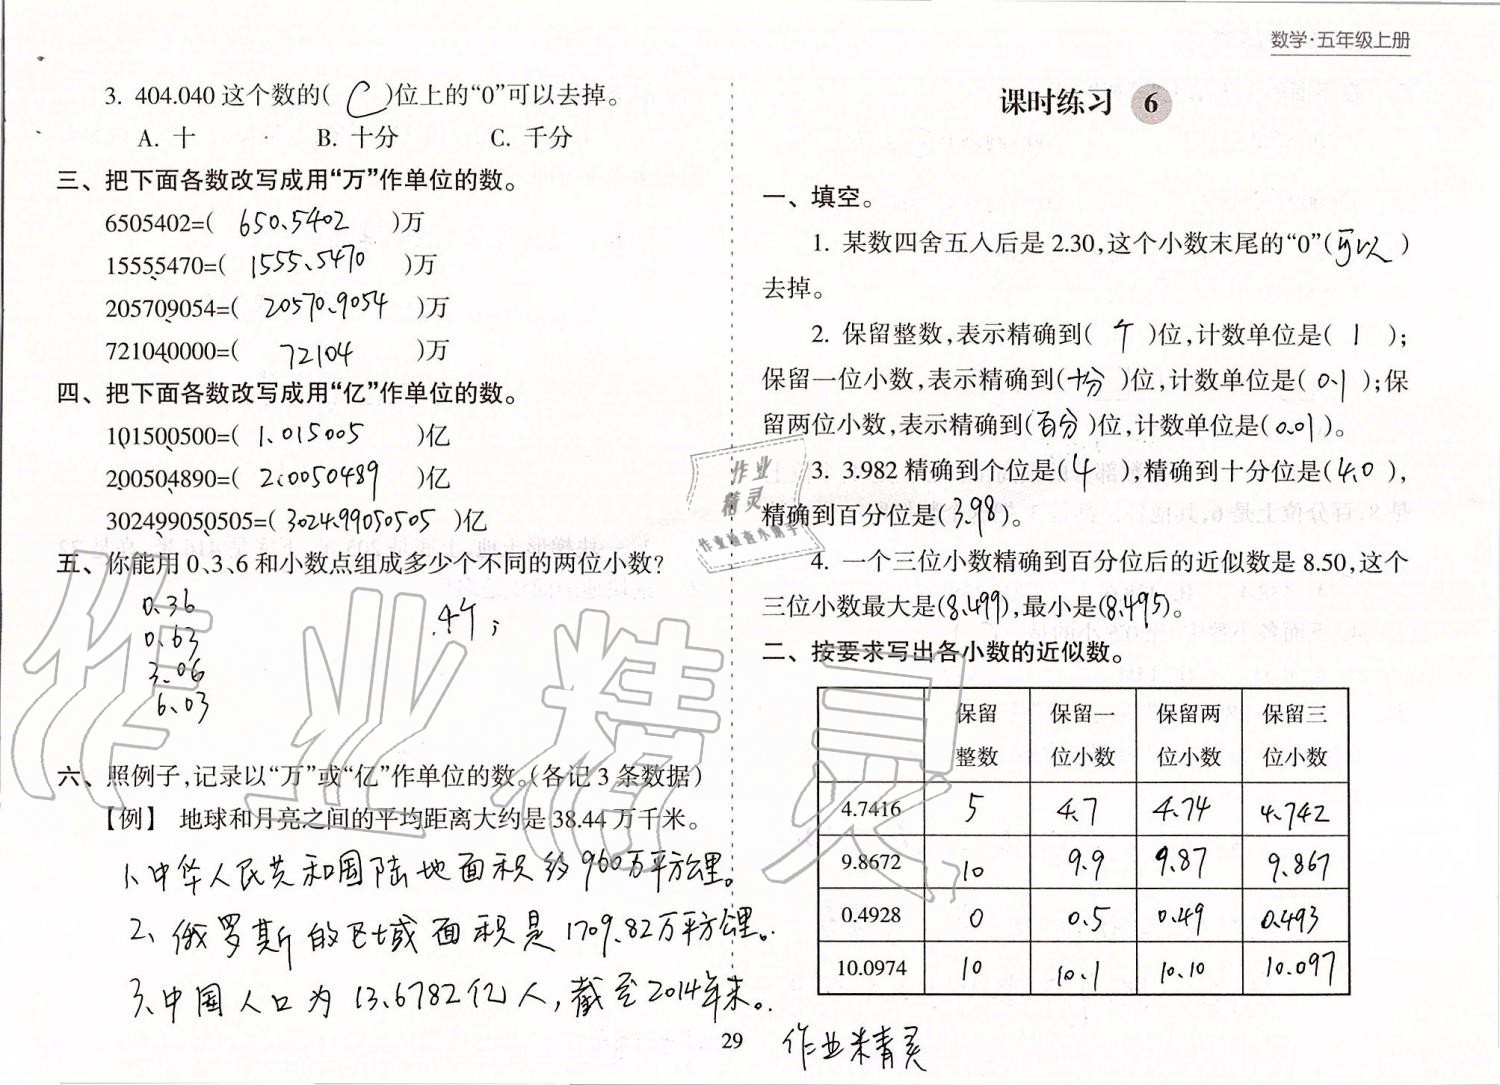 数学·五年级上册
3. 404.040这个数的( C )位上的“0”可以去掉。
A. 十 B. 十分 C. 千分
三、把下面各数改写成用“万”作单位的数。
6505402=( 650.5402 )万
15555470=( 1555.5470 )万
205709054=( 20570.9054 )万
721040000=( 72104 )万
四、把下面各数改写成用“亿”作单位的数。
101500500=( 1.015005 )亿
200504890=( 2.0050489 )亿
302499050505=( 3024.99050505 )亿
五、你能用0、3、6和小数点组成多少个不同的两位小数?
0.36
0.63
3.06
6.03
4个;
六、照例子,记录以“万”或“亿”作单位的数。(各记3条数据)
【例】 地球和月亮之间的平均距离大约是38.44万千米。
1、中华人民共和国陆地面积约960万平方公里。
2、俄罗斯的区域面积是1709.82万平方公里。
3、中国人口为13.6782亿人,截至2014年末。
29
课时练习 6
一、填空。
1. 某数四舍五入后是2.30,这个小数末尾的“0”( 可以 )
去掉。
2. 保留整数,表示精确到( 个 )位,计数单位是( 1 );
保留一位小数,表示精确到( 十分 )位,计数单位是( 0.1 );保
留两位小数,表示精确到( 百分 )位,计数单位是( 0.01 )。
3. 3.982精确到个位是( 4 ),精确到十分位是( 4.0 ),
精确到百分位是( 3.98 )。
4. 一个三位小数精确到百分位后的近似数是8.50,这个
三位小数最大是(8.499),最小是(8.495)。
二、按要求写出各小数的近似数。
保留整数 保留一位小数 保留两位小数 保留三位小数
4.7416 5 4.7 4.74 4.742
9.8672 10 9.9 9.87 9.867
0.4928 0 0.5 0.49 0.493
10.0974 10 10.1 10.10 10.097
作业精灵
作业
精灵
作业检查小助手
作业精灵